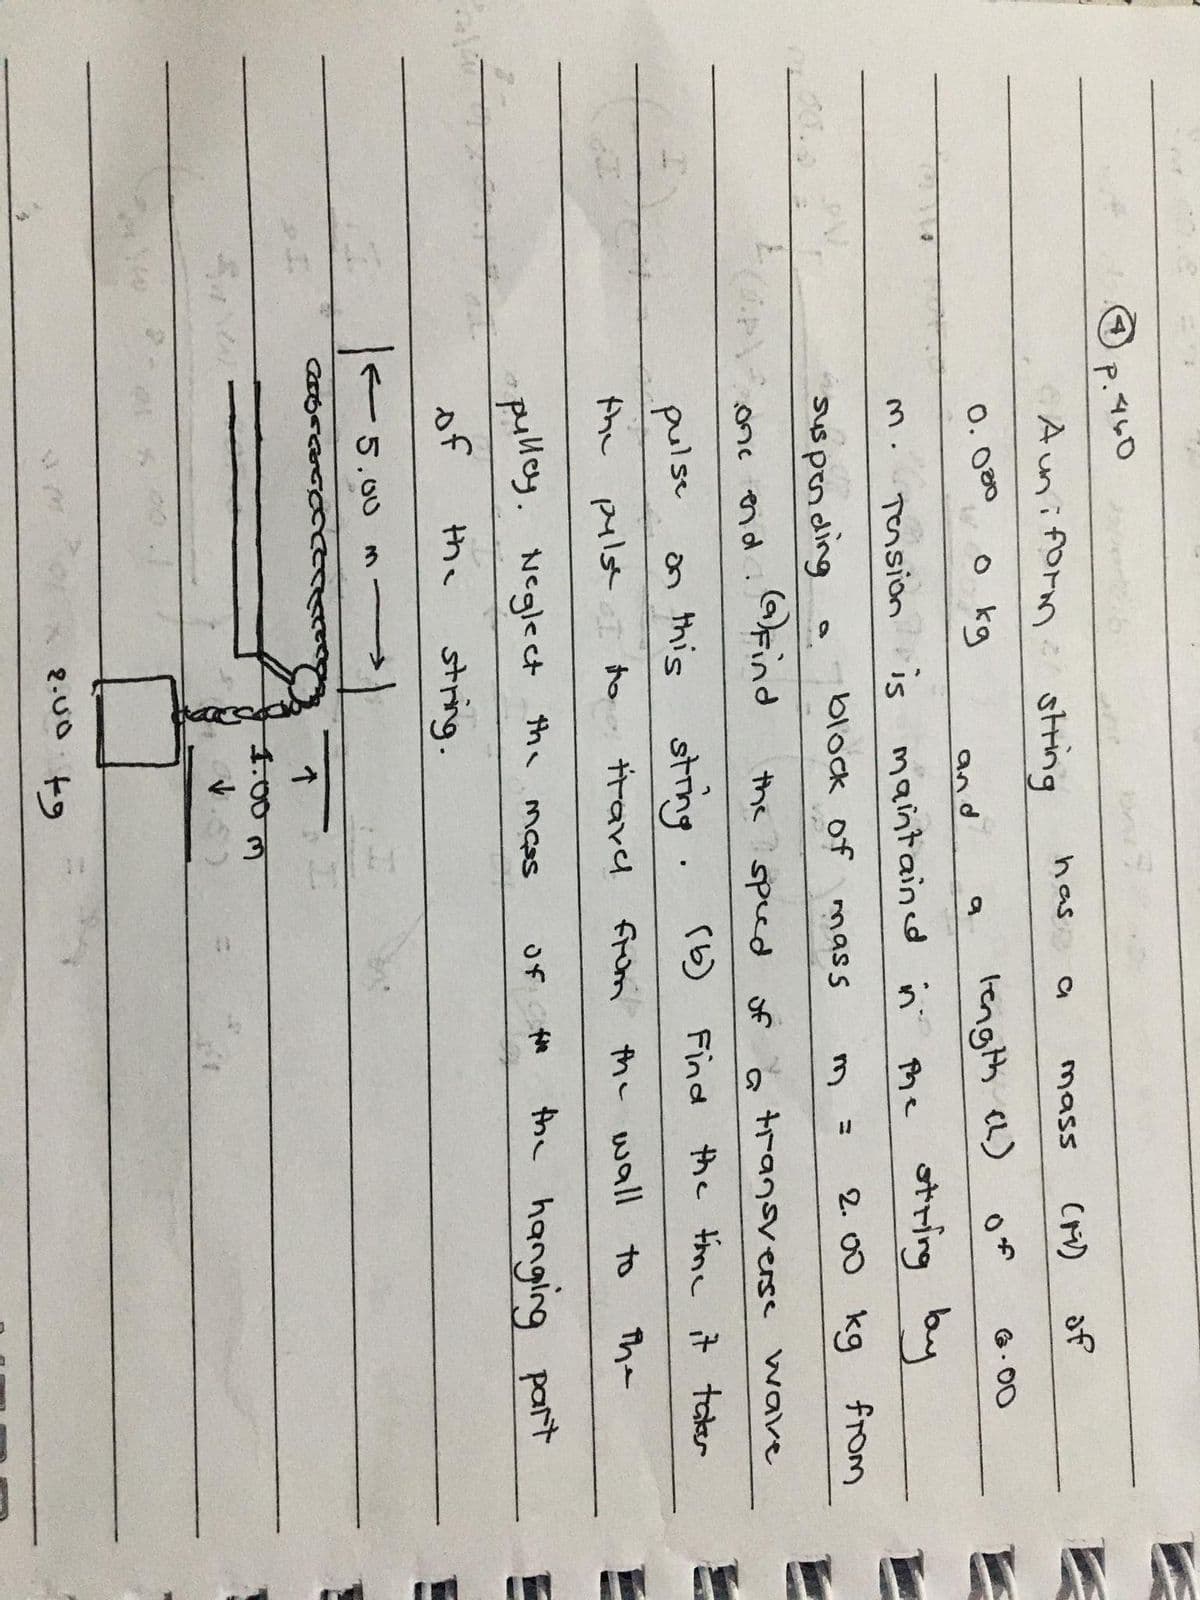 ④ p. 460
A uniform string has a mass (M) of
0.030 0 kg and a length (L) of 6.00
m. Tension is maintained in the string by
suspending a block of mass m = 2.00 kg from
one end. (a) Find the speed of a transverse wave
pulse on this string. (b) Find the time it takes
the pulse to travel from the wall to the
pulley. Neglect the mass of the the hanging part
of the string.
← 5.00 m →
↑
1.00 m
↓
2.00 kg